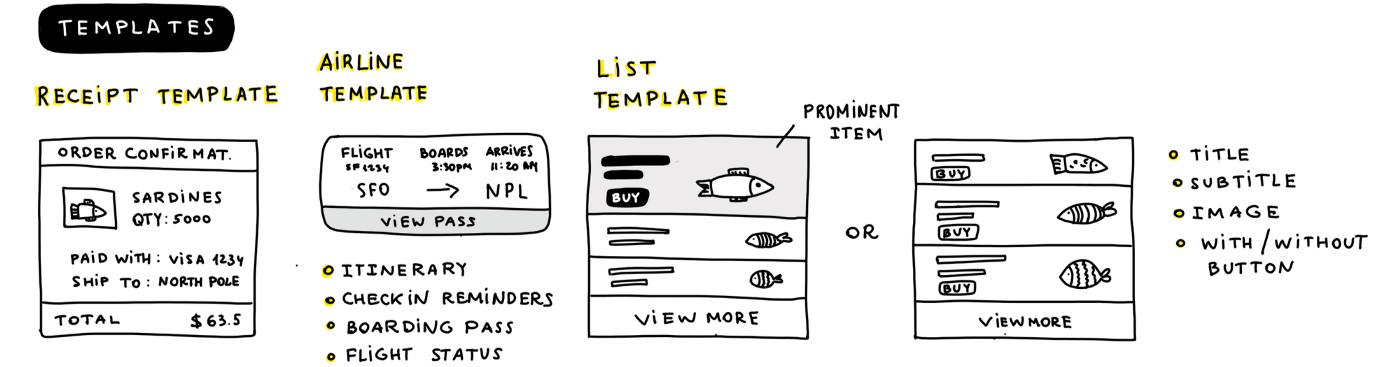 TEMPLATES
RECEIPT TEMPLATE
ORDER CONFIRMAT.
SARDINES
QTY: 5000
PAID WITH: VISA 1234
SHIP TO: NORTH POLE
TOTAL $63.5
AIRLINE
TEMPLATE
FLIGHT BOARDS ARRIVES
SF1234 3:30PM 11:20 AM
SFO → NPL
VIEW PASS
ITINERARY
CHECKIN REMINDERS
BOARDING PASS
FLIGHT STATUS
LIST
TEMPLATE
PROMINENT
ITEM
BUY
VIEW MORE
OR
BUY
BUY
BUY
VIEW MORE
TITLE
SUBTITLE
IMAGE
WITH/WITHOUT
BUTTON